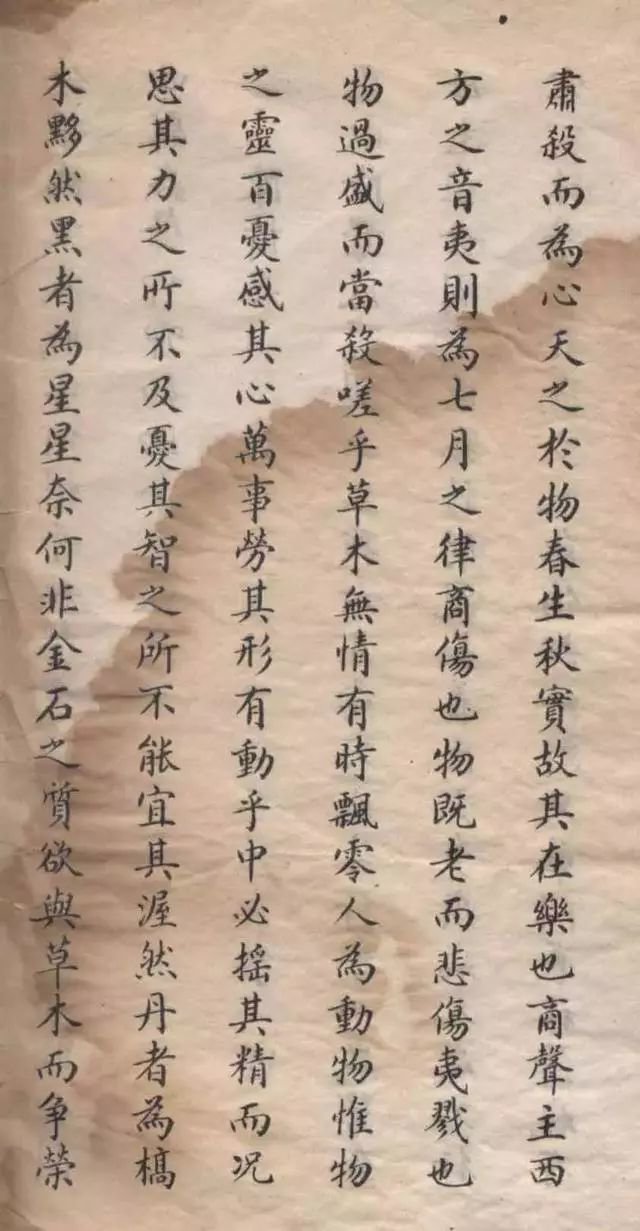 肅殺而為心天之於物春生秋實故其在樂也商聲主西
方之音夷則為七月之律商傷也物既老而悲傷夷戮也
物過盛而當殺嗟乎草木無情有時飄零人為動物惟物
之靈百憂感其心萬事勞其形有動乎中必搖其精而况
思其力之所不及憂其智之所不能宜其渥然丹者為槁
木黟然黑者為星星奈何非金石之質欲與草木而争榮